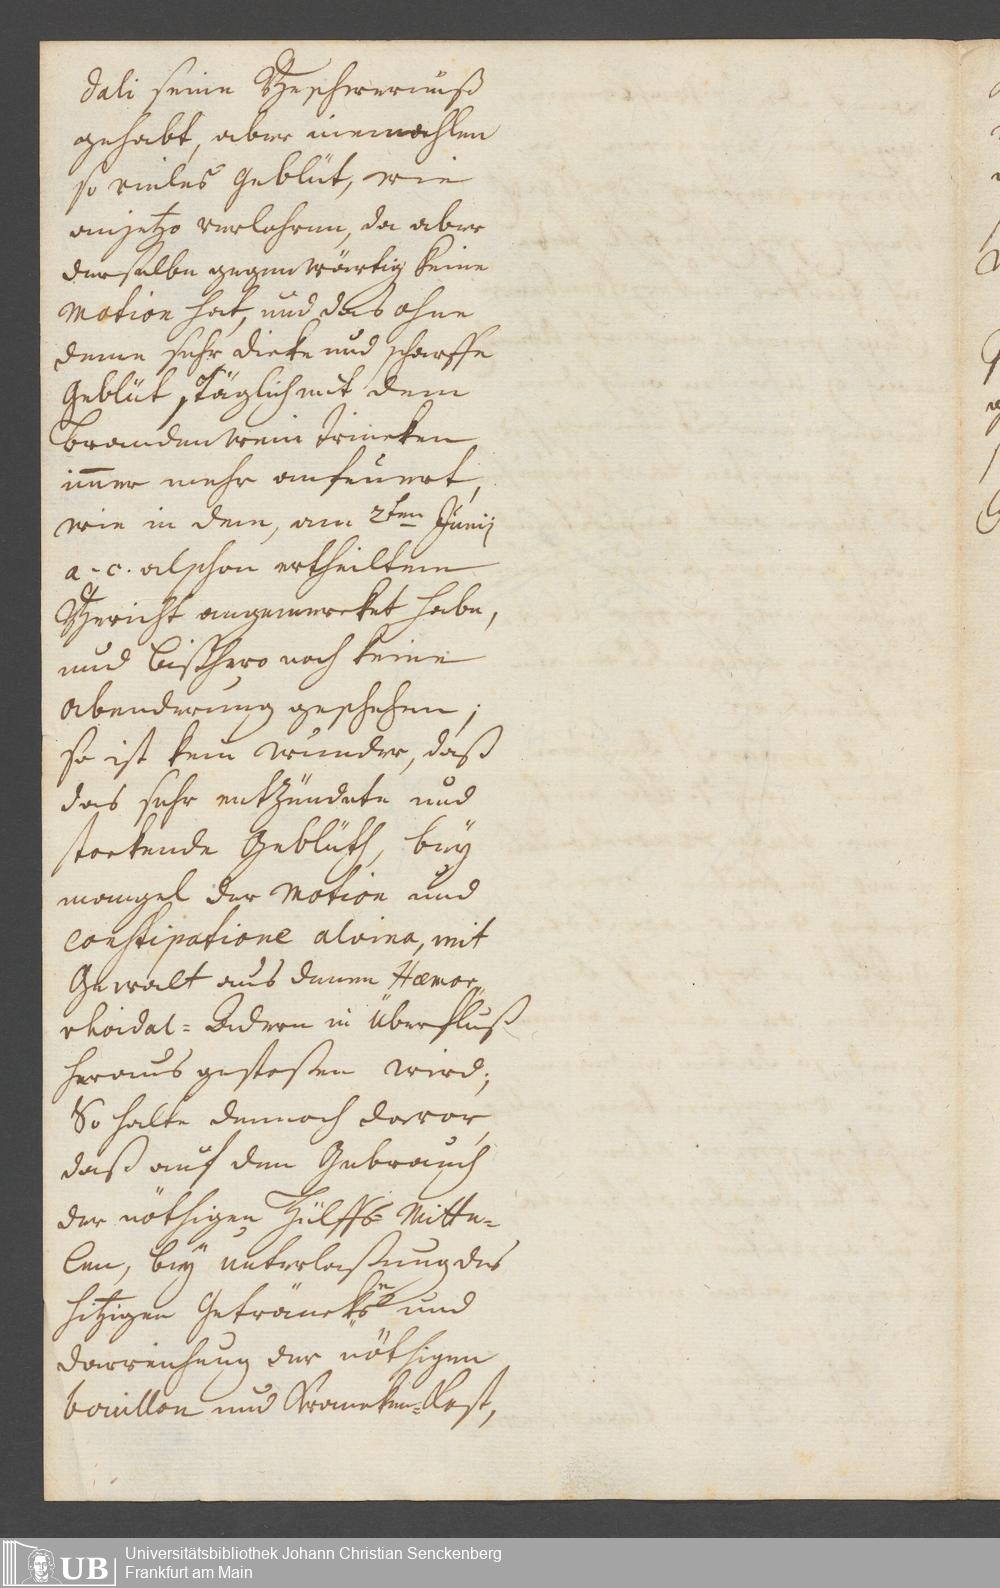 dali seine Beschwernuß
gehabt, aber niemahlen
so vieles Geblüt, wie
anjetzo verlohren, da aber
derselbe gegenwärtig keine
Motion hat, und das ohne
deme sehr dicke und scharffe
Geblüt, täglich mit dem
brandenwein trincken
im̄er mehr anfeuert,
wie in dem, am 2ten Junij
a. c. alschon ertheiltem
Bericht angemercket habe,
und bißhero noch keine
abenderung geschehen;
so ist kein wunder, daß
das sehr entzündete und
stockende Geblüth, bey
mangel der Motion und
constipatione alvina, mit
Gewalt aus denen Hæmor„
rhoidal= Adern in Überfluß
heraus gestoßen wird;
So halte dennoch davor,
daß auf den Gebrauch
der nöthigen Hülffs= Mitte=
len, bey unterlaßung des
hitzigen Geträncks und
darreichung der nöthigen
bouillon und Krancken=Kost,
UB
Universitätsbibliothek Johann Christian Senckenberg
Frankfurt am Main